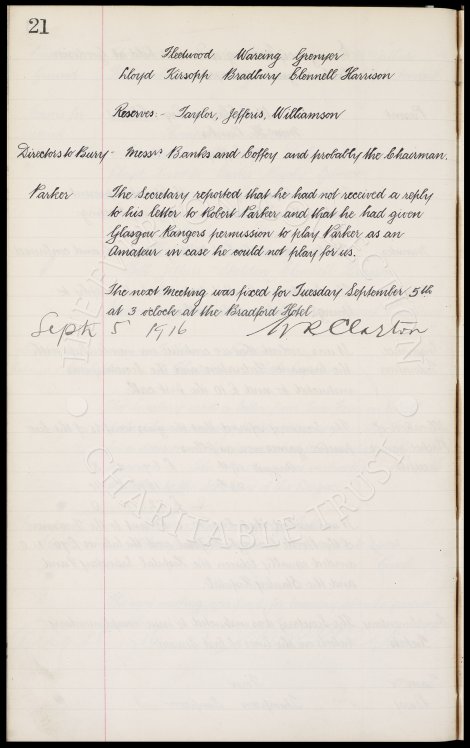 21
Fleetwood Wareing Grenyer
Lloyd Kirsopp Bradbury Clennell Harrison
Reserves:- Taylor, Jefferis, Williamson
Directors to Bury - Messrs Banks and Coffey and probably the Chairman.
Parker The Secretary reported that he had not received a reply
to his letter to Robert Parker and that he had given
Glasgow Rangers permission to play Parker as an
Amateur in case he could not play for us.
The next Meeting was fixed for Tuesday September 5th
at 3 o'clock at the Bradford Hotel
Sept 5 1916 W R Clayton
CHARITABLE TRUST